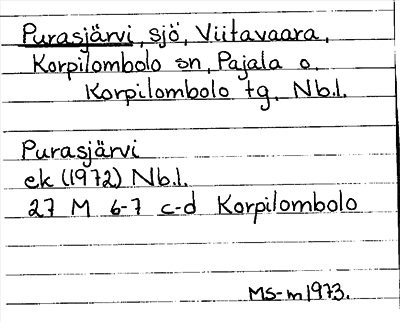 Purasjärvi, sjö, Viitavaara,
Korpilombolo sn, Pajala o.
Korpilombolo tg, Nb.l.
Purasjärvi
ek (1972) Nb.l.
27 M 6-7 c-d Korpilombolo
MS-m 1973.